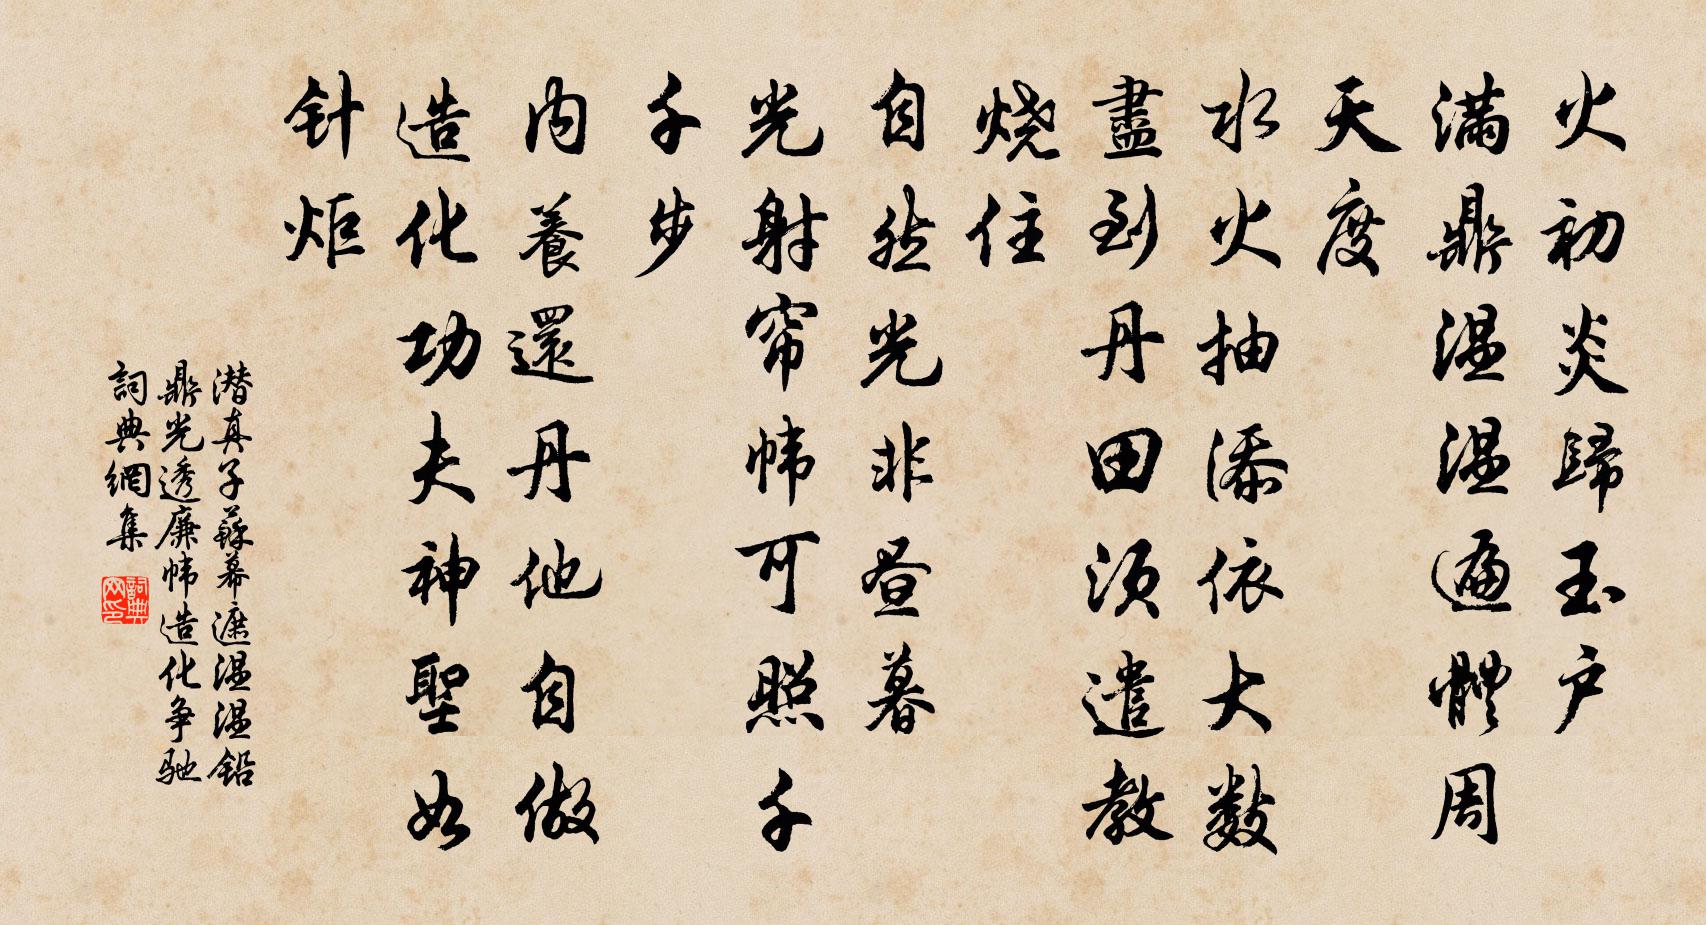 火初炎歸玉户
满鼎温温遍體周
天度
水火抽添依大数
盡到丹田须遣教
烧住
自然光非昼暮
光射帘帏可照千
千步
内養還丹他自做
造化功夫神聖如
针炬
潜真子蘇幕遮温温铅
鼎光透廉帏造化争驰
詞典網集